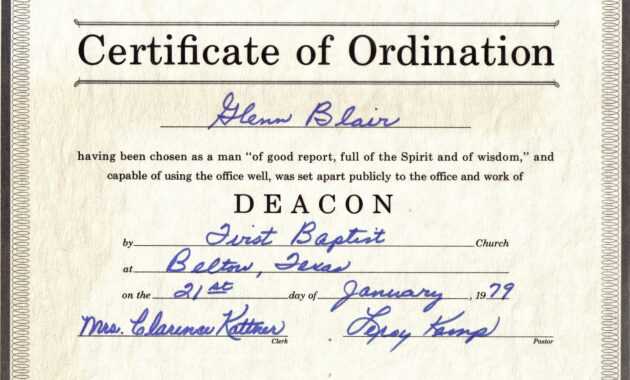 Certificate of Ordination
Glenn Blair
having been chosen as a man "of good report, full of the Spirit and of wisdom," and
capable of using the office well, was set apart publicly to the office and work of
DEACON
by First Baptist Church
at Belton, Texas
on the 21st day of January, 1979
Mrs. Clarence Kattner Leroy Kamp
Clerk Pastor